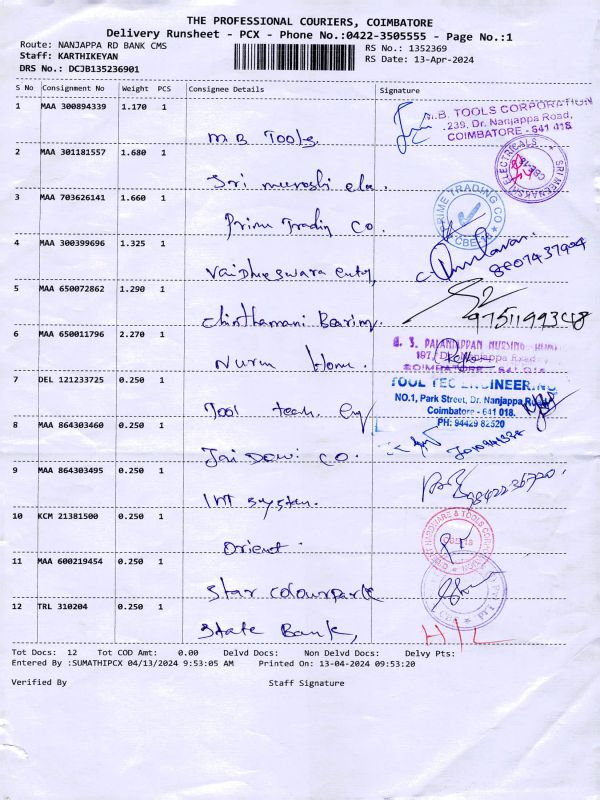 THE PROFESSIONAL COURIERS, COIMBATORE
Delivery Runsheet - PCX - Phone No.:0422-3505555 - Page No.:1
Route: NANJAPPA RD BANK CMS
RS No.: 1352369
Staff: KARTHIKEYAN
RS Date: 13-Apr-2024
DRS No.: DCJB135236901
S No Consignment No Weight PCS Consignee Details Signature
1 MAA 300894339 1.170 1 M.B Tools.
M.B. TOOLS CORPORATION
239, Dr. Nanjappa Road,
COIMBATORE - 641 018
2 MAA 301181557 1.680 1 Sri
SRI MEENAKSHI ELECTRICALS
3 MAA 703626141 1.660 1 Prime Trading Co.
PRIME TRADING CO
CBE-18
4 MAA 300399696 1.325 1
8807437904
5 MAA 650072862 1.290 1 Chinthamani Bearing.
6 MAA 650011796 2.270 1 Home.
PALANIAPPAN NURSING HOME
197, Dr. Nanjappa Road
COIMBATORE
7 DEL 121233725 0.250 1 Tool
TOOL TEC ENGINEERING
NO.1, Park Street, Dr. Nanjappa Road
Coimbatore - 641 018.
PH: 94429 82520
8 MAA 864303460 0.250 1 Jai Devi Co.
9 MAA 864303495 0.250 1 INT system.
10 KCM 21381500 0.250 1 Orient.
HARDWARE & TOOLS CORPORATION
11 MAA 600219454 0.250 1 Star colourpark
12 TRL 310204 0.250 1 State Bank,
Tot Docs: 12 Tot COD Amt: 0.00 Delvd Docs: Non Delvd Docs: Delvy Pts:
Entered By :SUMATHIPCX 04/13/2024 9:53:05 AM Printed On: 13-04-2024 09:53:20
Verified By Staff Signature